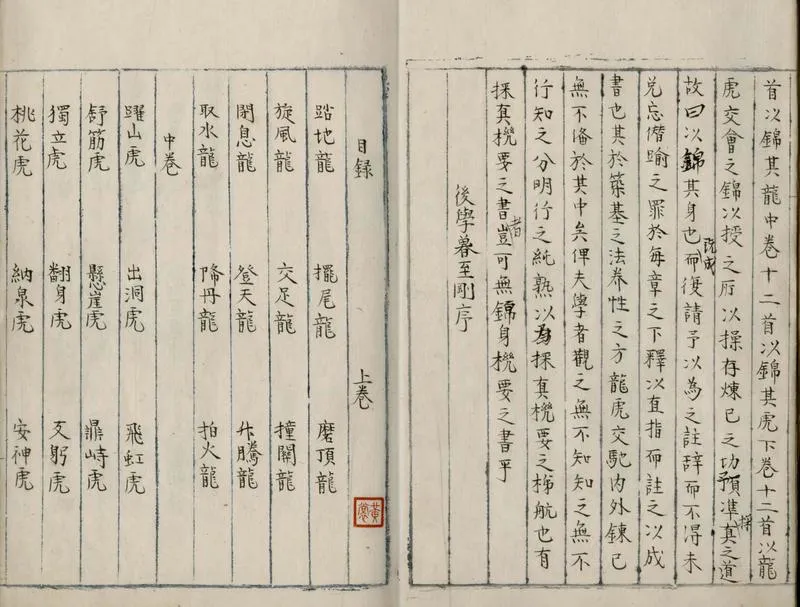 首以錦其龍中卷十二首以錦其虎下卷十二首以龍
虎交會之錦以授之所以操存煉已之功預準採真之道
故曰以錦其身也既成而復請予以為之註辭而不得未
兌忘僭踰之罪於每章之下釋以直指而註之以成
書也其於築基之法養性之方龍虎交馳內外鍊已
無不備於其中矣俾夫學者觀之無不知知之無不
行知之分明行之純熟以為採真機要之梯航也有
採真機要之書者豈可無錦身機要之書乎
後學暮至剛序
目録 上卷
踏地龍 擺尾龍 磨頂龍
旋風龍 交足龍 撞關龍
閉息龍 登天龍 升騰龍
取水龍 降丹龍 拍火龍
中卷
躍山虎 出洞虎 飛虹虎
舒筋虎 懸崖虎 鼎峙虎
獨立虎 翻身虎 躬虎
桃花虎 納泉虎 安神虎